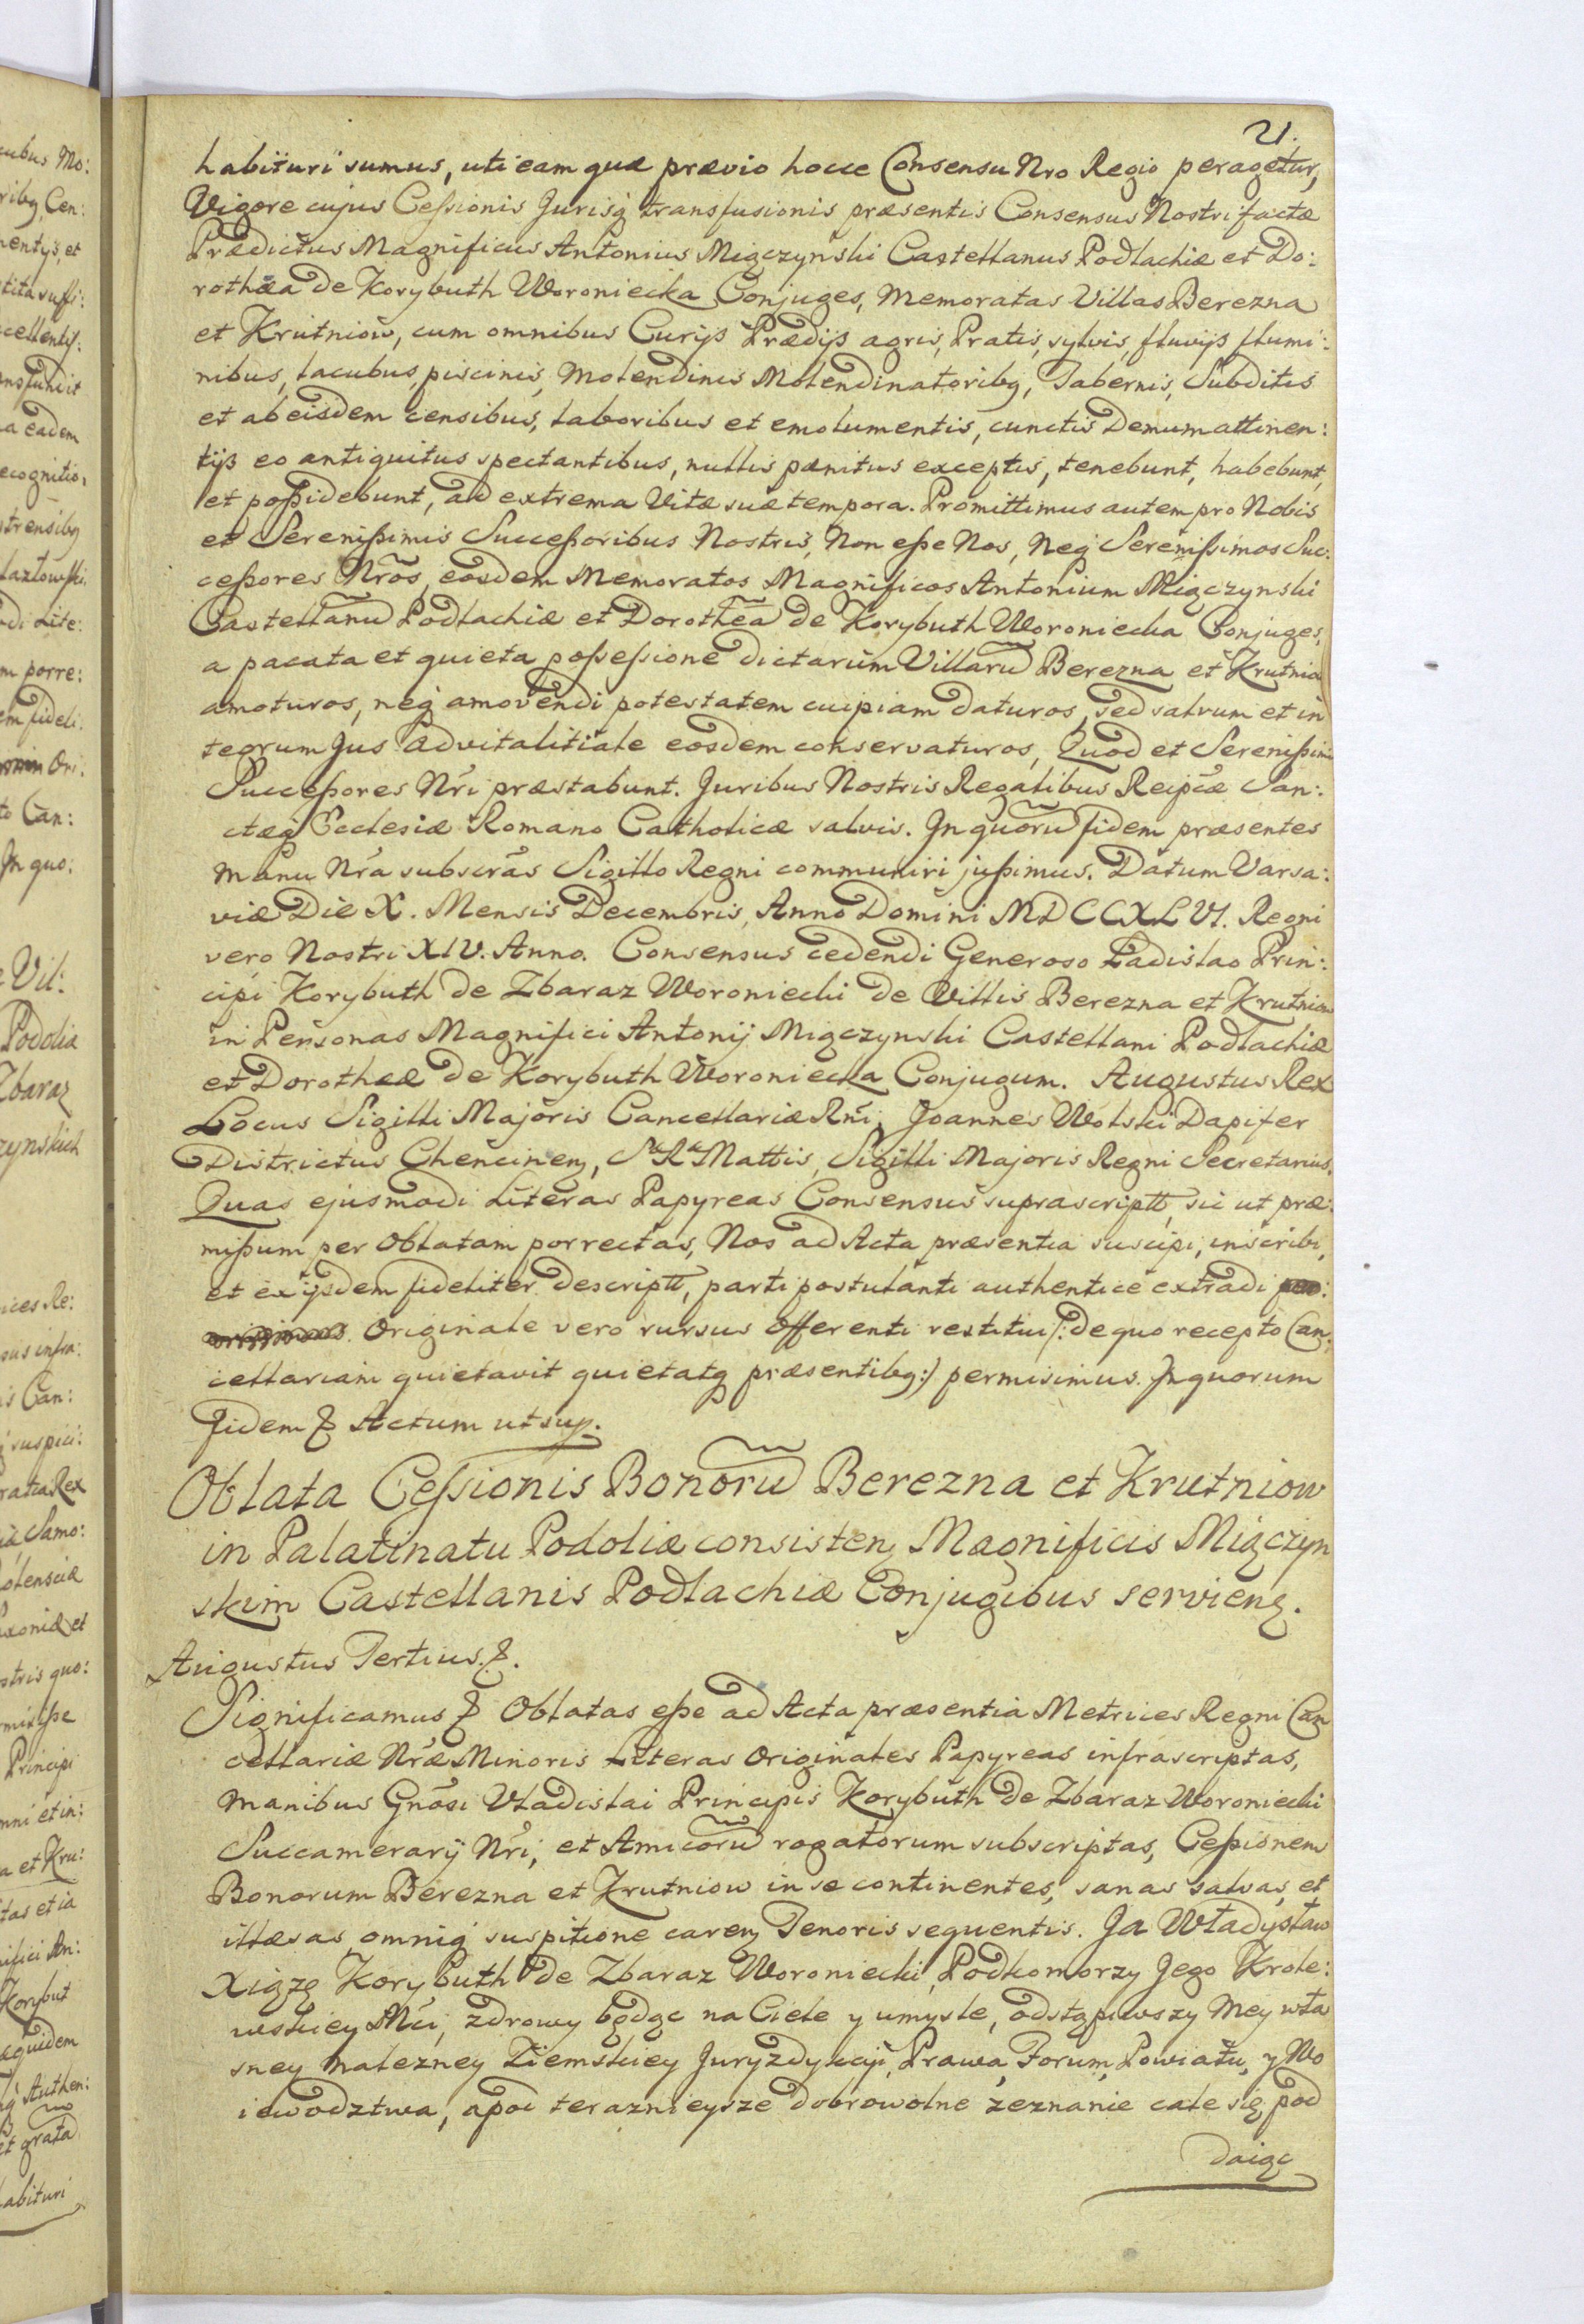 21.
habituri sumus, uti eam quæ prævio hocce Consensu Nro Regio peragetur,
Vigore cujus Cessionis Jurisq transfusionis præsentis Consensus Nostri factæ
Prædictus Magnificus Antonius Miączynski Castellanus Podlachiæ et Do:
rothæa de Korybuth Woroniecka Conjuges, Memoratas Villas Berezna
et Krutniow, cum omnibus Curijs Prædijs agris, Pratis, sylvis, fluvijs flumi:
nibus, lacubus, piscinis, Molendinis Molendinatoribq, Tabernis, Subditis
et ab eisdem censibus, laboribus et emolumentis, cunctis Demum attinen:
tijs eo antiquitus spectantibus, nullis pænitus exceptis, tenebunt, habebunt,
et possidebunt, ad extrema Vitæ suæ tempora. Promittimus autem pro Nobis
et Serenissimis Successoribus Nostris, Non esse Nos, Neq Serenissimos Suc:
cessores Nros, eosdem Memoratos Magnificos Antonium Miączynski
Castellanũ Podlachiæ et Dorothea de Korybuth Woroniecka Conjuges,
a pacata et quieta possessione dictarum Villarũ Berezna et Krutnia
amoturos, neq amovendi potestatem cuipiam daturos, sed salvum et in
tegrum Jus Advitalitiale eosdem conservaturos, Quod et Serenissimi
Successores Nri præstabunt. Juribus Nostris Regalibus Reipcæ San:
ctæq Ecclesiæ Romano Catholicæ salvis. In quorũ fidem præsentes
Manu Nra subscras Sigillo Regni communiri jussimus. Datum Varsa:
viæ Die X. Mensis Decembris, Anno Domini MDCCXLVI. Regni
vero Nostri XIV. Anno. Consensus cedendi Generoso Ladislao Prin:
cipi Korybuth de Zbaraz Woroniecki de Villis Berezna et Krutniow
in Personas Magnifici Antonij Miączynski Castellani Podlachiæ
et Dorotheæ de Korybuth Woroniecka Conjugum. Augustus Rex
Locus Sigilli Majoris Cancellariæ Rni, Joannes Wolski Dapifer
Districtus Chencinen, Sæ Ræ Mattis, Sigilli Majoris Regni Secretarius.
Quas ejusmodi Literas Papyreas Consensus suprascriptt, sic ut præ:
missum per Oblatam porrectas, Nos ad Acta præsentia suscipi, inscribi,
et ex ijsdem fideliter descriptt, parti postulanti authentice extradi
Originale vero rursus Offerenti restitui /: de quo recepto Can:
cellariam quietavit quietatq præsentibq :/ permisimus. In quorum
fidem & Actum ut sup.
Oblata Cessionis Bonorũ Berezna et Krutniow
in Palatinatu Podoliæ consisten, Magnificis Miączyn
skim Castellanis Podlachiæ Conjugibus servien.
Augustus Tertius &.
Significamus & Oblatas esse ad Acta præsentia Metrices Regni Can
cellariæ Nræ Minoris Literas Originales Papyreas infrascriptas,
Manibus Gnosi Vladislai Principis Korybuth de Zbaraz Woroniecki
Succamerarij Nri, et Amicorũ rogatorum subscriptas, Cessionem
Bonorum Berezna et Krutniow in se continentes, sanas salvas, et
illæsas, omniq suspitione caren Tenoris sequentis. Ja Władysław
Xiążę Korybuth de Zbaraz Woroniecki, Podkomorzy Jego Krole:
wskiey Mci, zdrowy będąc na Ciele y umysle, odstąpiwszy Mey wła
sney nalezney Ziemskiey Juryzdykcji, Prawa, Forum, Powiatu, y Wo
iewodztwa, apod teraznieysze dobrowolne zeznanie cale się pod
daiąc